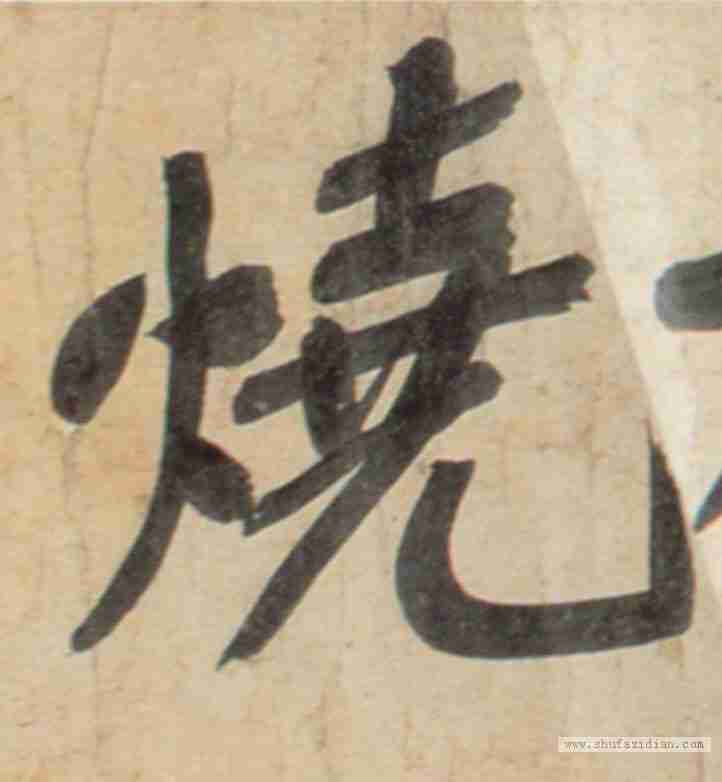 燒
www.shufazidian.com